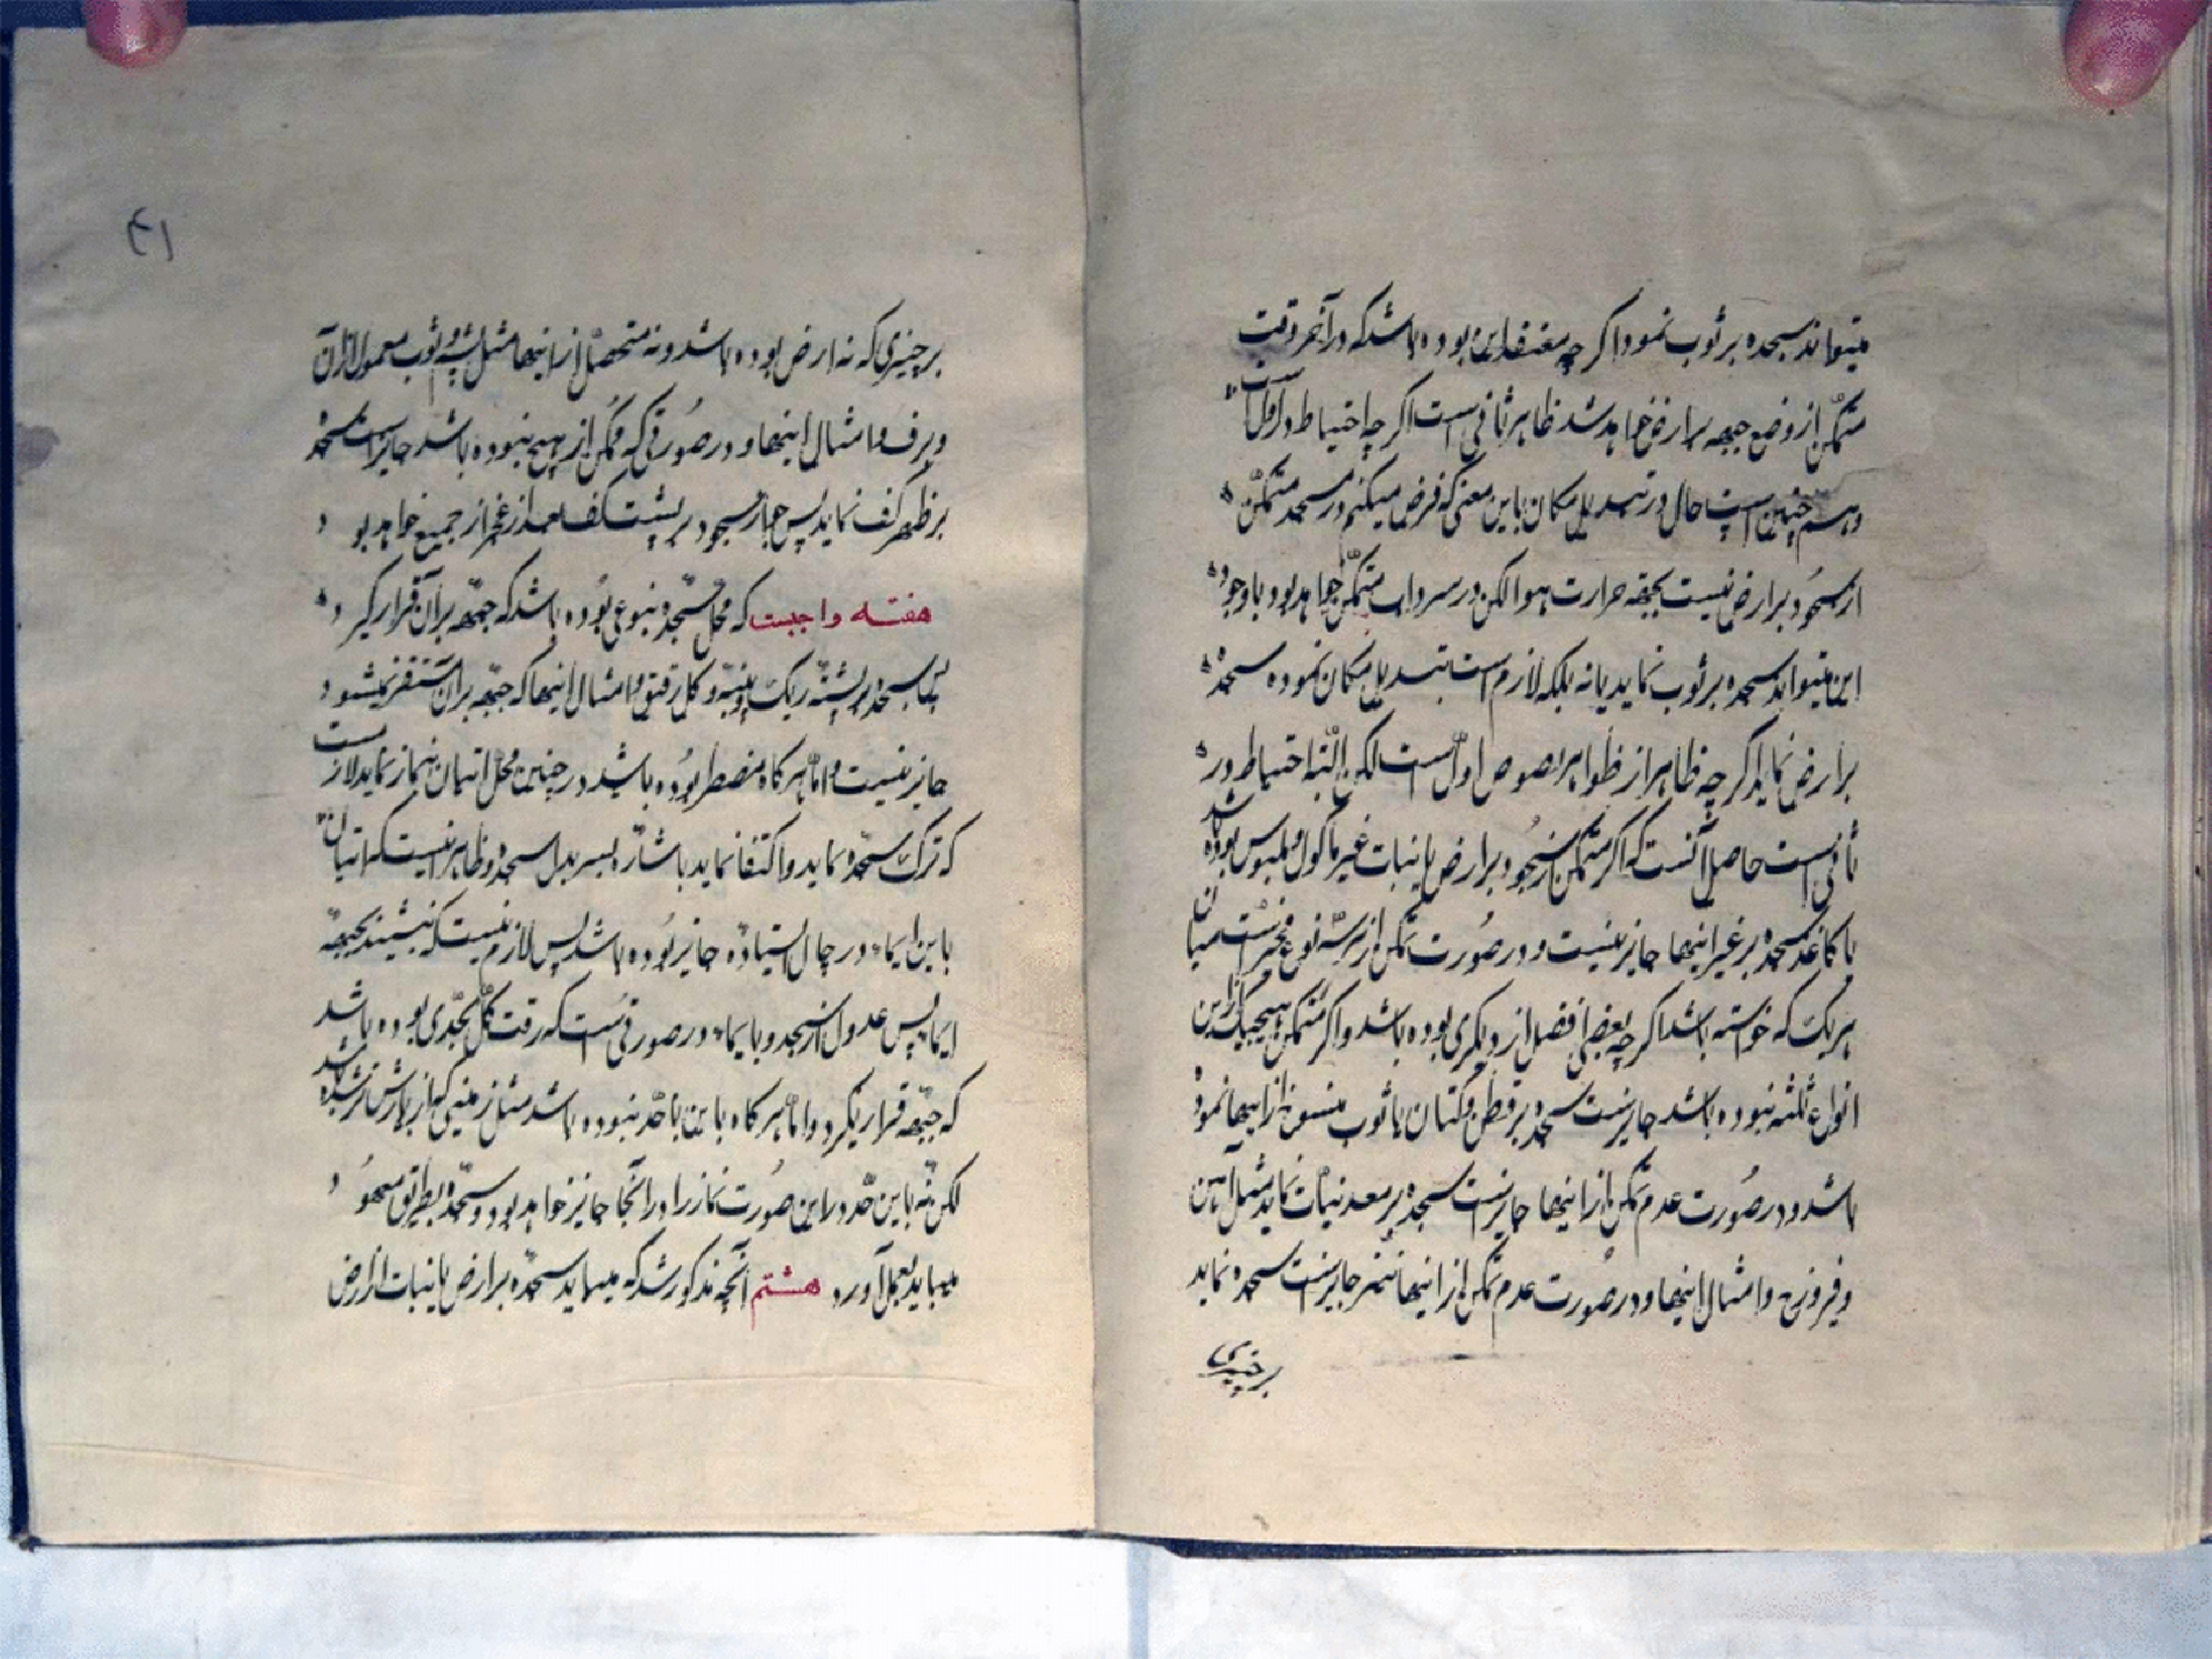 میتواند سجده بر ثوب نمود اگر چه معتقد این بوده باشد که در آخر وقت
متمکّن از وضع جبهه بر ارض خواهد شد ظاهر ثانی است اگر چه احتیاط در اول است
و همچنین است حال در تبدیل مکان باین معنی که فرض میکنم در مسجد متمکّن
از سجود بر ارض نیست بجهة حرارت هوا لکن در سرداب متمکّن خواهد بود با وجود
این میتواند سجده بر ثوب نماید یا نه بلکه لازم است تبدیل مکان نموده سجده
بر ارض نماید اگر چه ظاهر از ظواهر نصوص اول است لکن البته احتیاط در
ثانی است حاصل آنست که اگر متمکن از سجود بر ارض یا نبات غیر مأکول و ملبوس بوده باشد
یا کاغذ سجده بر غیر اینها جایز نیست و در صورت تمکن از هر سه نوع مخیّر است میان
هر یک که خواسته باشد اگر چه بعضی افضل از دیگری بوده باشد و اگر متمکن از هیچیک از این
انواع ثلثه نبوده باشد جایز است سجده بر قطن و کتان یا ثوب منسوج از اینها نموده
باشد و در صورت عدم تمکن از اینها جایز است سجده بر معدنیات نماید مثل آهن
و فیروزج و امثال اینها و در صورت عدم تمکن از اینها نیز جایز است سجده نماید
بر چیزی
۴۱
بر چیزی که نه ارض بوده باشد و نه متحصّل از اینها مثل پشم و ثوب معمول از آن
و برف و امثال اینها و در صورتی که ممکن از هیچ نبوده باشد جایز است سجده
بر ظهر کف نماید پس جواز سجود بر پشت کف بعد از عجز از جمیع خواهد بود
هفتم واجبست که محل سجده بنوعی بوده باشد که جبهه بر آن قرار گیرد
پس سجده بر پشته ریک و پنبه و گل رقیق و امثال اینها که جبهه بر آن مستقر نمیشود
جایز نیست و اما هر کاه مضطر بوده باشد در چنین محل اتیان بنماز نماید لازمست
که ترک سجده نماید و اکتفا نماید باشاره بسر بدل سجده و ظاهر اینست که اتیان
باین ایماء در حال ایستاده جایز بوده باشد پس لازم نیست که بنشیند بجهة
ایماء پس عدول از سجده بایماء در صورتی است که رقت گل بحدّی بوده باشد
که جبهه قرار نگیرد و اما هر کاه باین حدّ نبوده باشد مثل زمینی که از بارش تر شده باشد
لکن نه باین حدّ در این صورت نماز را در آنجا جایز خواهد بود و سجده بطریق معهود
میباید بعمل آورد هشتم آنچه مذکور شد که میباید سجده بر ارض یا نبات از ارض